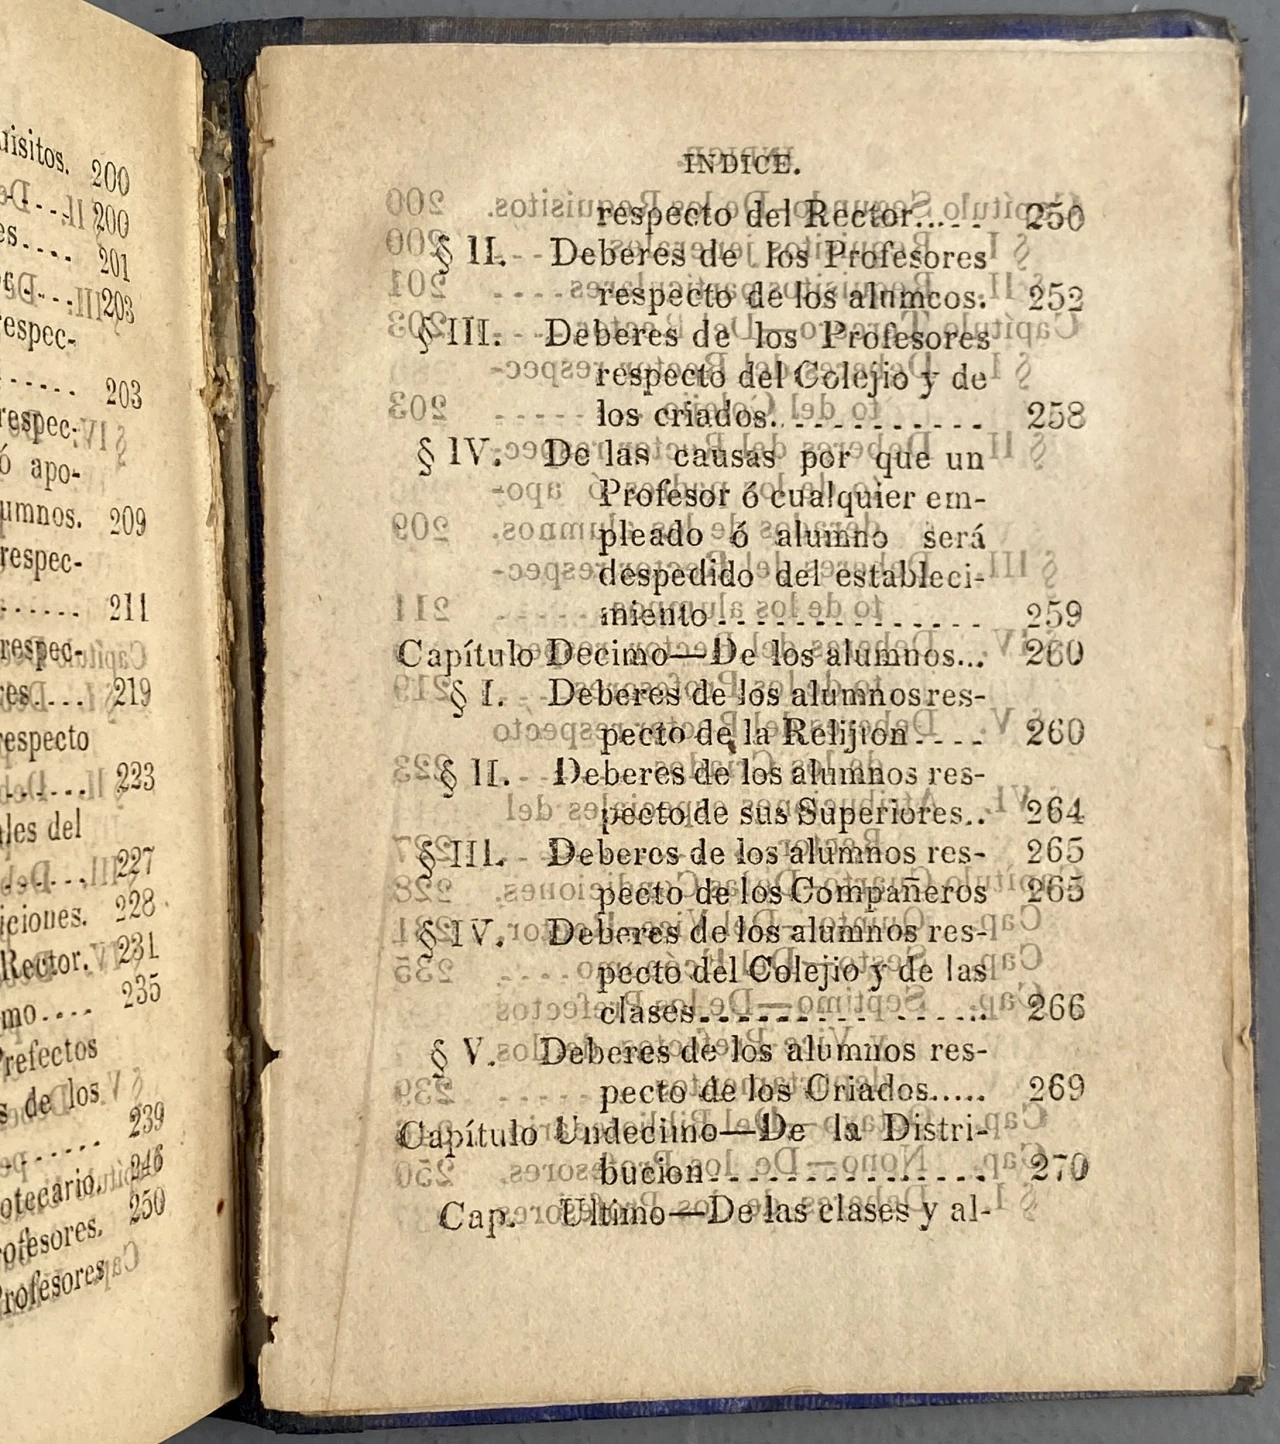 uisitos. 200
200
es.... 201
203
respec-
..... 203
respec-
ó apo-
umnos. 209
respec-
...... 211
respec-
res.... 219
respecto
...... 223
ales del
.... 227
iciones. 228
Rector. 231
mo.... 235
Prefectos
s de los
..... 239
otecario. 246
rofesores. 250
Profesores
INDICE.
respecto del Rector..... 250
§ II. Deberes de los Profesores
respecto de los alumcos. 252
§ III. Deberes de los Profesores
respecto del Colejio y de
los criados........... 258
§ IV. De las causas por que un
Profesor ó cualquier em-
pleado ó alumno será
despedido del estableci-
miento.............. 259
Capítulo Decimo—De los alumnos... 260
§ I. Deberes de los alumnos res-
pecto de la Relijion.... 260
§ II. Deberes de los alumnos res-
pecto de sus Superiores.. 264
§ III. Deberes de los alumnos res- 265
pecto de los Compañeros 265
§ IV. Deberes de los alumnos res-
pecto del Colejio y de las
clases............... 266
§ V. Deberes de los alumnos res-
pecto de los Criados..... 269
Capítulo Undecimo—De la Distri-
bucion.............. 270
Cap. Ultimo—De las clases y al-